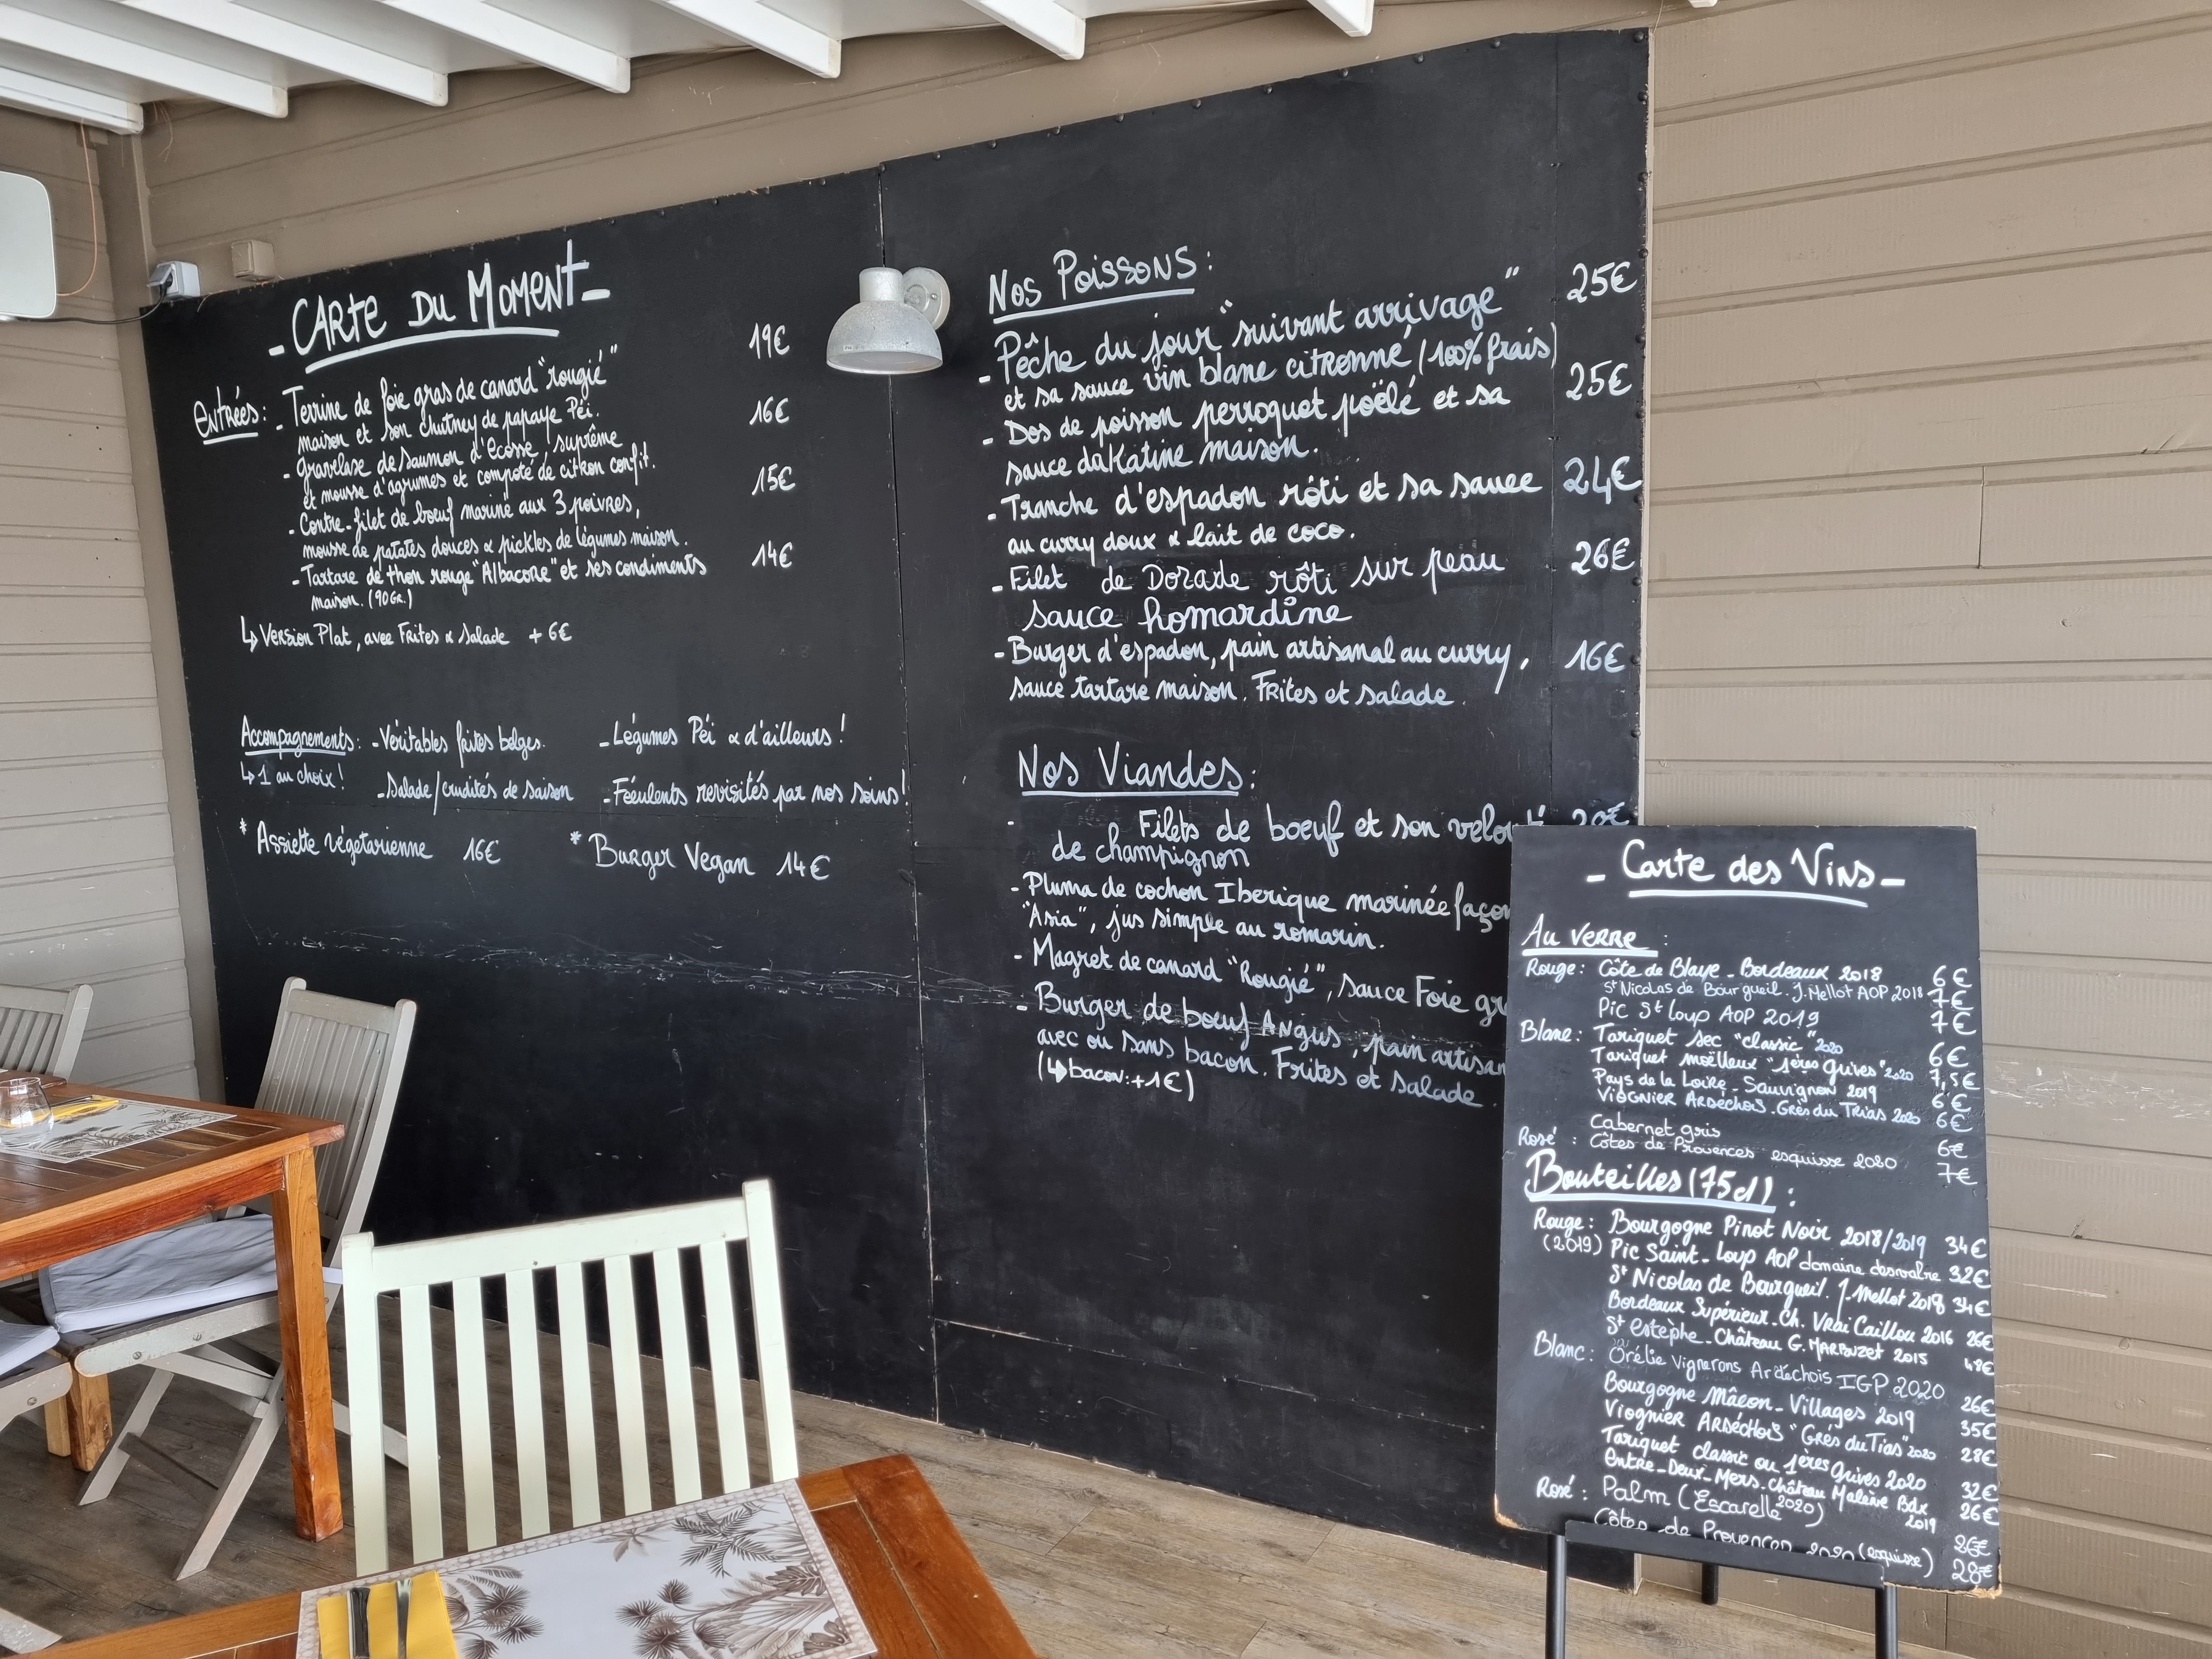 - CARTE DU MOMENT -
Entrées: - Terrine de foie gras de canard "rougié" 19€
maison et son chutney de papaye Péi.
- Gravelaxe de saumon d'Ecosse, suprême 16€
et mousse d'agrumes et compoté de citron confit.
- Contre-filet de boeuf mariné aux 3 poivres, 15€
mousse de patates douces & pickles de légumes maison.
- Tartare de thon rouge "Albacore" et ses condiments 14€
maison. (90Gr.)
↳ Version Plat, avec Frites & Salade + 6€
Accompagnements: - Véritables frites belges. - Légumes Péi & d'ailleurs!
↳ 1 au choix! - Salade/crudités de saison - Féculents revisités par nos soins!
* Assiette végétarienne 16€ * Burger Vegan 14€
Nos Poissons:
- Pêche du jour "suivant arrivage" 25€
et sa sauce vin blanc citronné (100% frais)
- Dos de poisson perroquet poëlé et sa 25€
sauce dakatine maison.
- Tranche d'espadon rôti et sa sauce 24€
au curry doux & lait de coco.
- Filet de Dorade rôti sur peau 26€
sauce homardine
- Burger d'espadon, pain artisanal au curry, 16€
sauce tartare maison. Frites et salade.
Nos Viandes:
Filets de boeuf et son
de champignon
- Pluma de cochon Iberique marinée façon
"Asia", jus simple au romarin.
- Magret de canard "Rougié", sauce Foie gr
- Burger de boeuf Angus, pain artisan
avec ou sans bacon. Frites et salade.
(↳ bacon: +1€)
- Carte des Vins -
Au verre:
Rouge: Côte de Blaye - Bordeaux 2018 6€
St Nicolas de Bourgueil. J. Mellot AOP 2018 7€
Pic St Loup AOP 2019 7€
Blanc: Tariquet sec "classic" 2020 6€
Tariquet moëlleux "1ères grives" 2020 7,5€
Pays de la Loire - Sauvignon 2019 6€
Viognier Ardéchois. Grès du Trias 2020 6€
Cabernet gris 6€
Rosé: Côtes de Provences esquisse 2020 7€
Bouteilles (75cl):
Rouge: Bourgogne Pinot Noir 2018/2019 34€
(2019) Pic Saint-Loup AOP domaine 32€
St Nicolas de Bourgueil. J. Mellot 2018 34€
Bordeaux Supérieur - Ch. Vrai Caillou 2016 26€
St Estèphe - Château G. Marbuzet 2015 48€
Blanc: Orélie Vignerons Ardéchois IGP 2020
Bourgogne Mâcon-Villages 2019 26€
Viognier Ardéchois "Grès du Tias" 2020 35€
Tariquet classic ou 1ères Grives 2020 28€
Entre-Deux-Mers. Château Bdx 32€
2019 26€
Rosé: Palm (Escarelle 2020)
Côtes de Provences 2020 (esquisse) 26€
28€